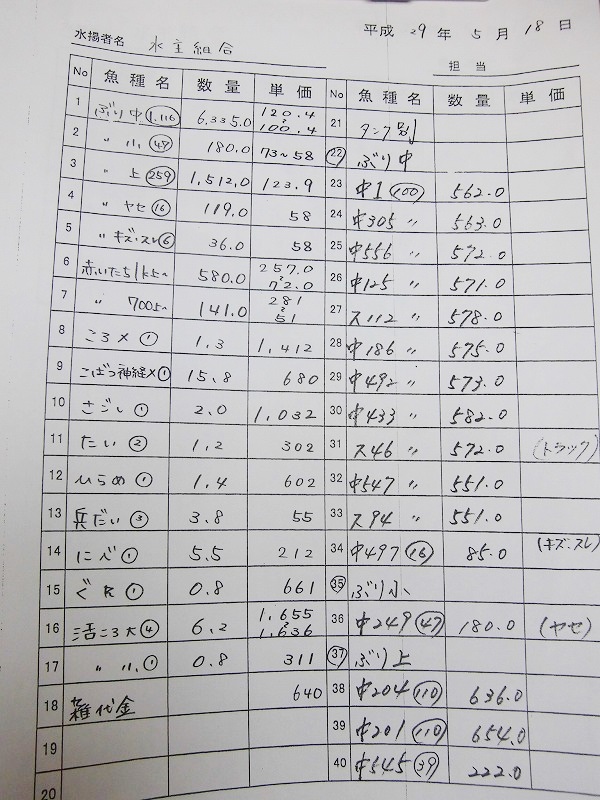 平成 29 年 5 月 18 日
水揚者名 水主組合
担当
No 魚種名 数量 単価
1 ぶり中 1,116 6,335.0 120.4 ~ 100.4
2 〃 小 47 180.0 73~58
3 〃 上 259 1,512.0 123.9
4 〃 ヤセ 16 119.0 58
5 〃 キズ.スレ 6 36.0 58
6 赤いたち1k5〃 580.0 257.0 ~ 72.0
7 〃 7005〃 141.0 281 ~ 51
8 ころメ 1 1.3 1,412
9 こばつ神経メ 1 15.8 680
10 さごし 1 2.0 1,032
11 たい 2 1.2 302
12 ひらめ 1 1.4 602
13 兵だい 3 3.8 55
14 にべ 1 5.5 212
15 ぐれ 1 0.8 661
16 活ころ大 4 6.2 1,655 ~ 1,636
17 〃 小 1 0.8 311
18 雑代金 640
19
20
No 魚種名 数量 単価
21 タンク別
22 ぶり中
23 中1 100 562.0
24 中305 〃 563.0
25 中556 〃 572.0
26 中125 〃 571.0
27 ス112 〃 578.0
28 中186 〃 575.0
29 中492 〃 573.0
30 中433 〃 582.0
31 ス46 〃 572.0 (トラック)
32 中547 〃 551.0
33 ス94 〃 551.0
34 中497 16 85.0 (キズ.スレ)
35 ぶり小
36 中249 47 180.0 (ヤセ)
37 ぶり上
38 中204 110 636.0
39 中201 110 654.0
40 中545 39 222.0